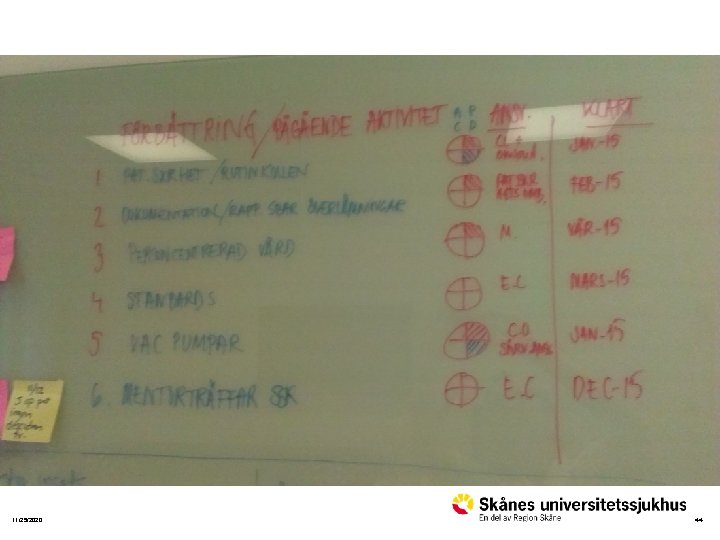 FÖRBÄTTRING/PÅGÅENDE AKTIVITET A P ANSV. KLART
C D
1 PAT.SÄKERHET/RUTINKOLLEN CL + JAN-15
2 DOKUMENTATION/RAPP. SBAR ÖVERLÄMNINGAR PAT.SÄK FEB-15
3 PERSONCENTRERAD VÅRD M. VÅR-15
4 STANDARDS E.C MARS-15
5 VAC PUMPAR C.O JAN-15
SÅRV.ANSV.
6. MENTORTRÄFFAR SSK E.C DEC-15
11/12
S op per
ingen
Skånes universitetssjukhus
En del av Region Skåne
11/25/2020
44